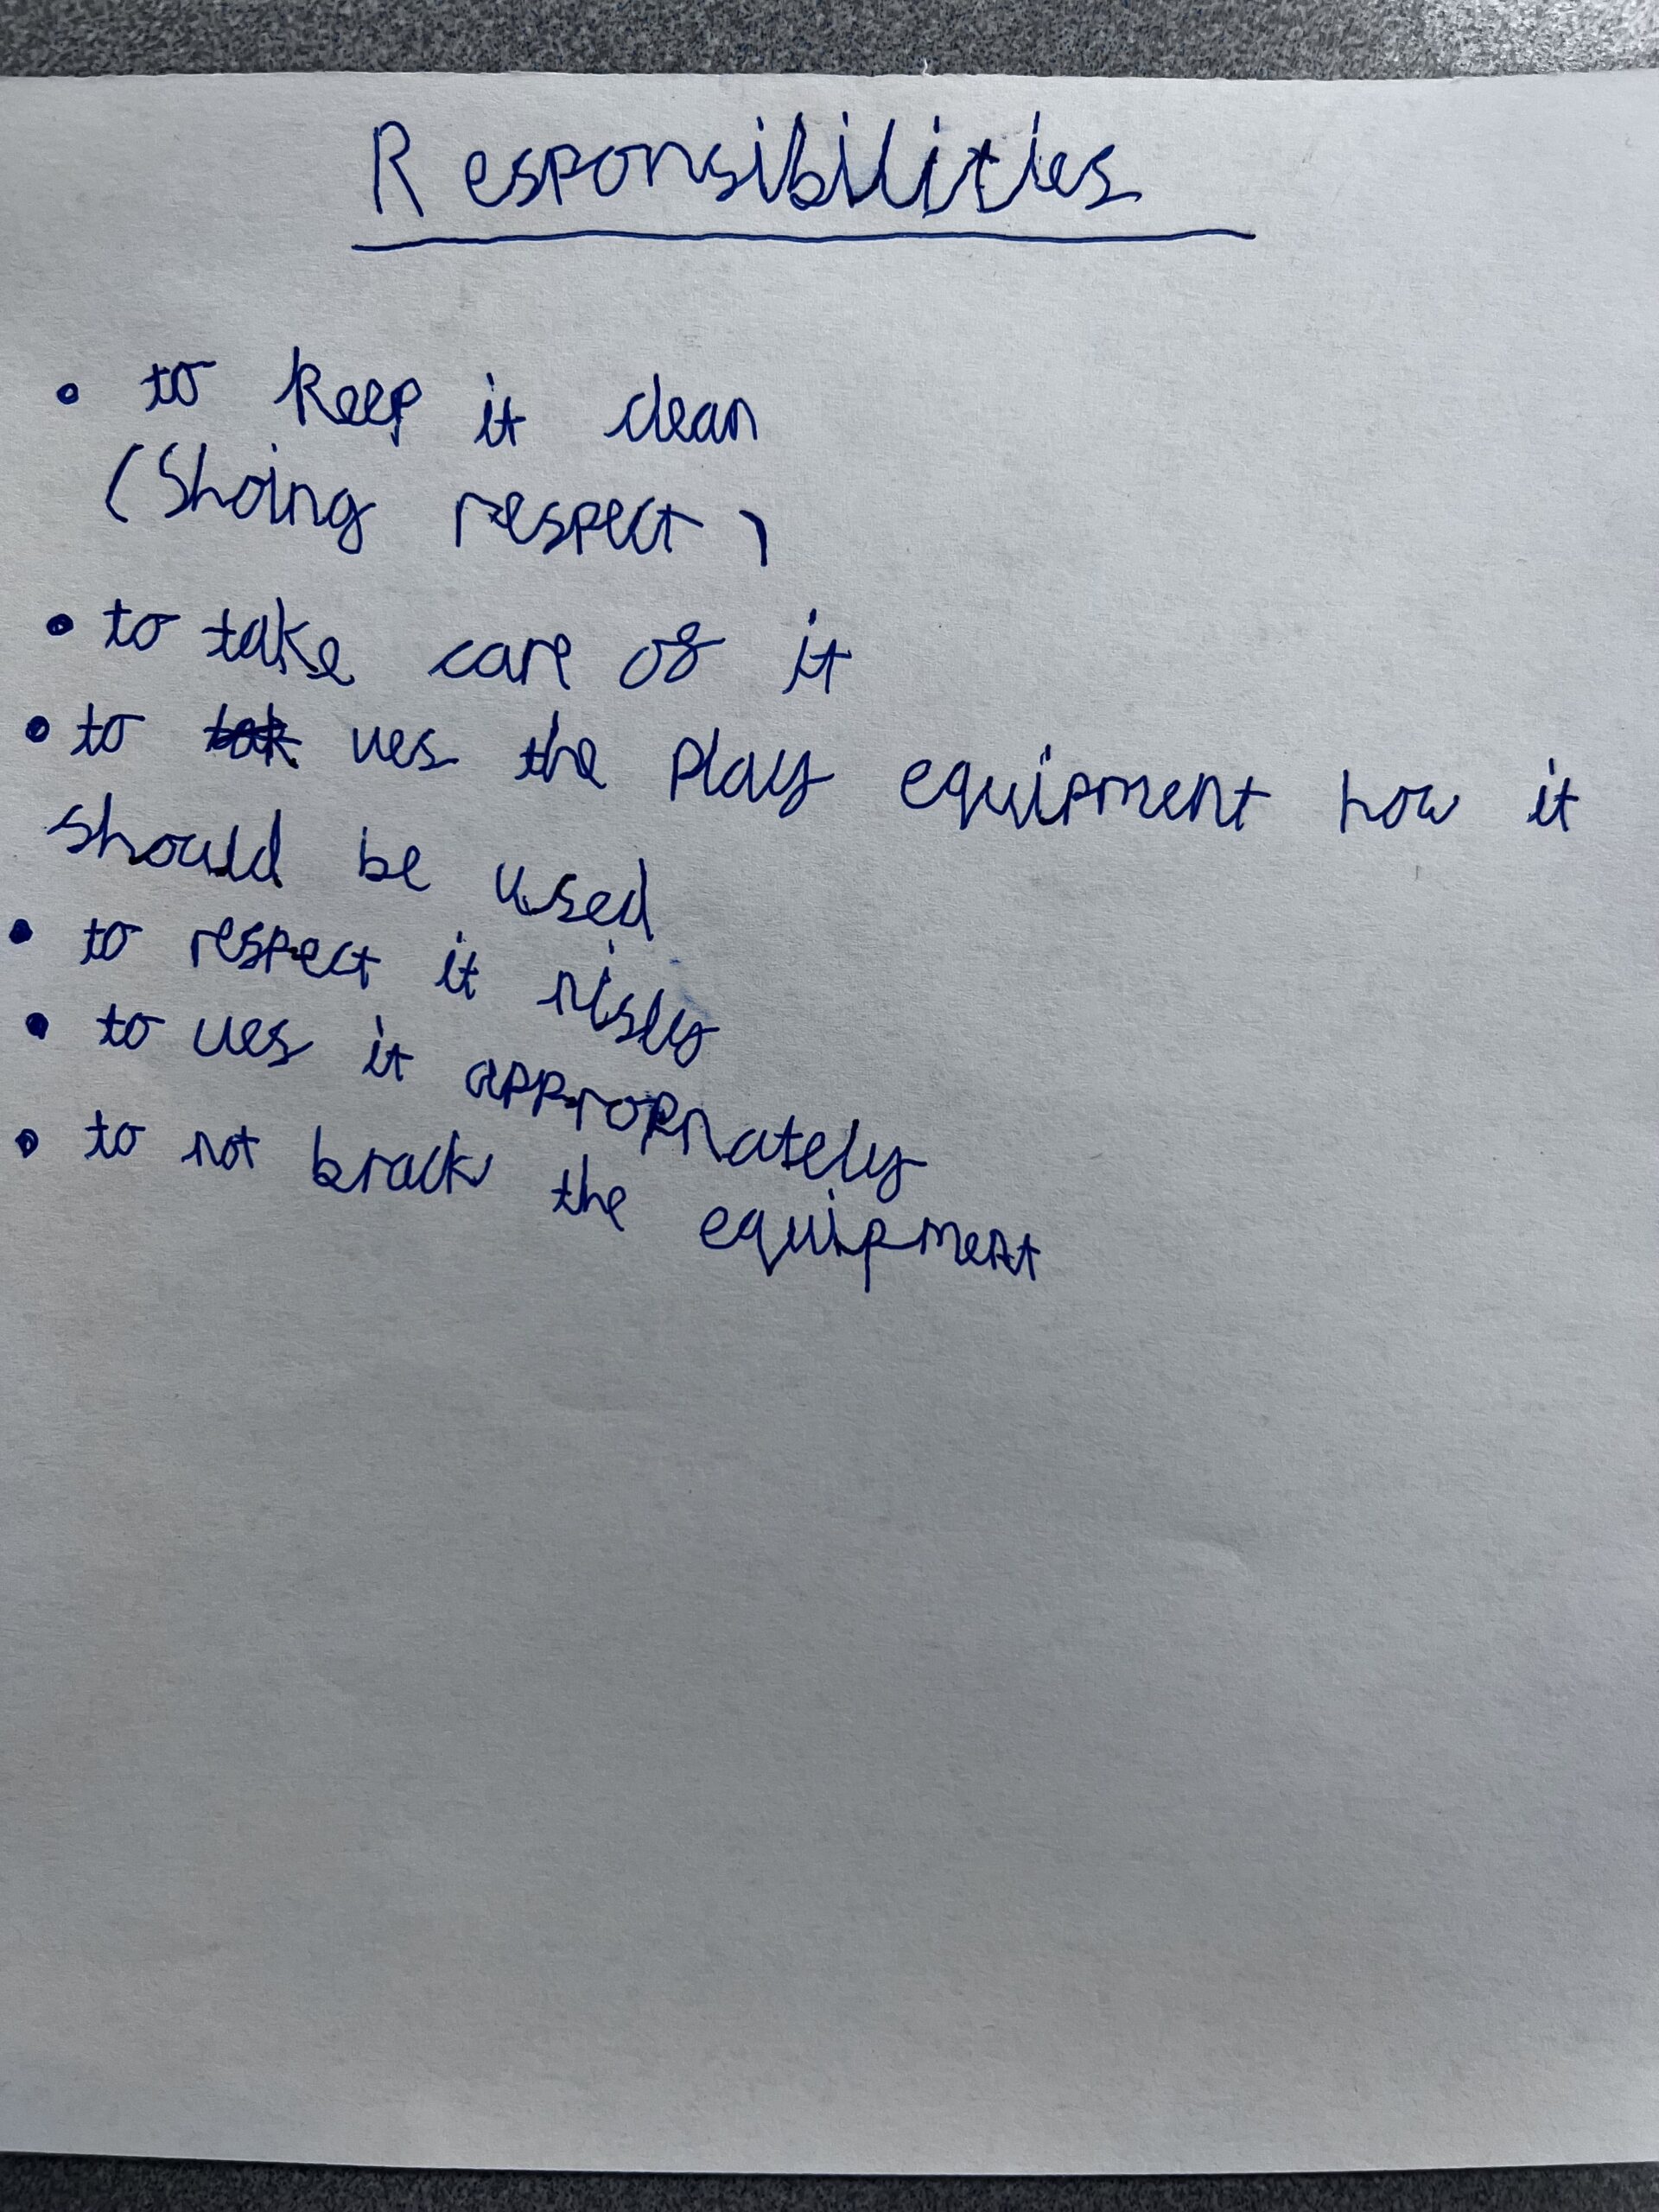 Responsibilities
• to keep it clean
(Shoing respect)
• to take care of it
• to ues the play equipment how it
should be used
• to respect it nisly
• to ues it appropriately
• to not brack the equipment